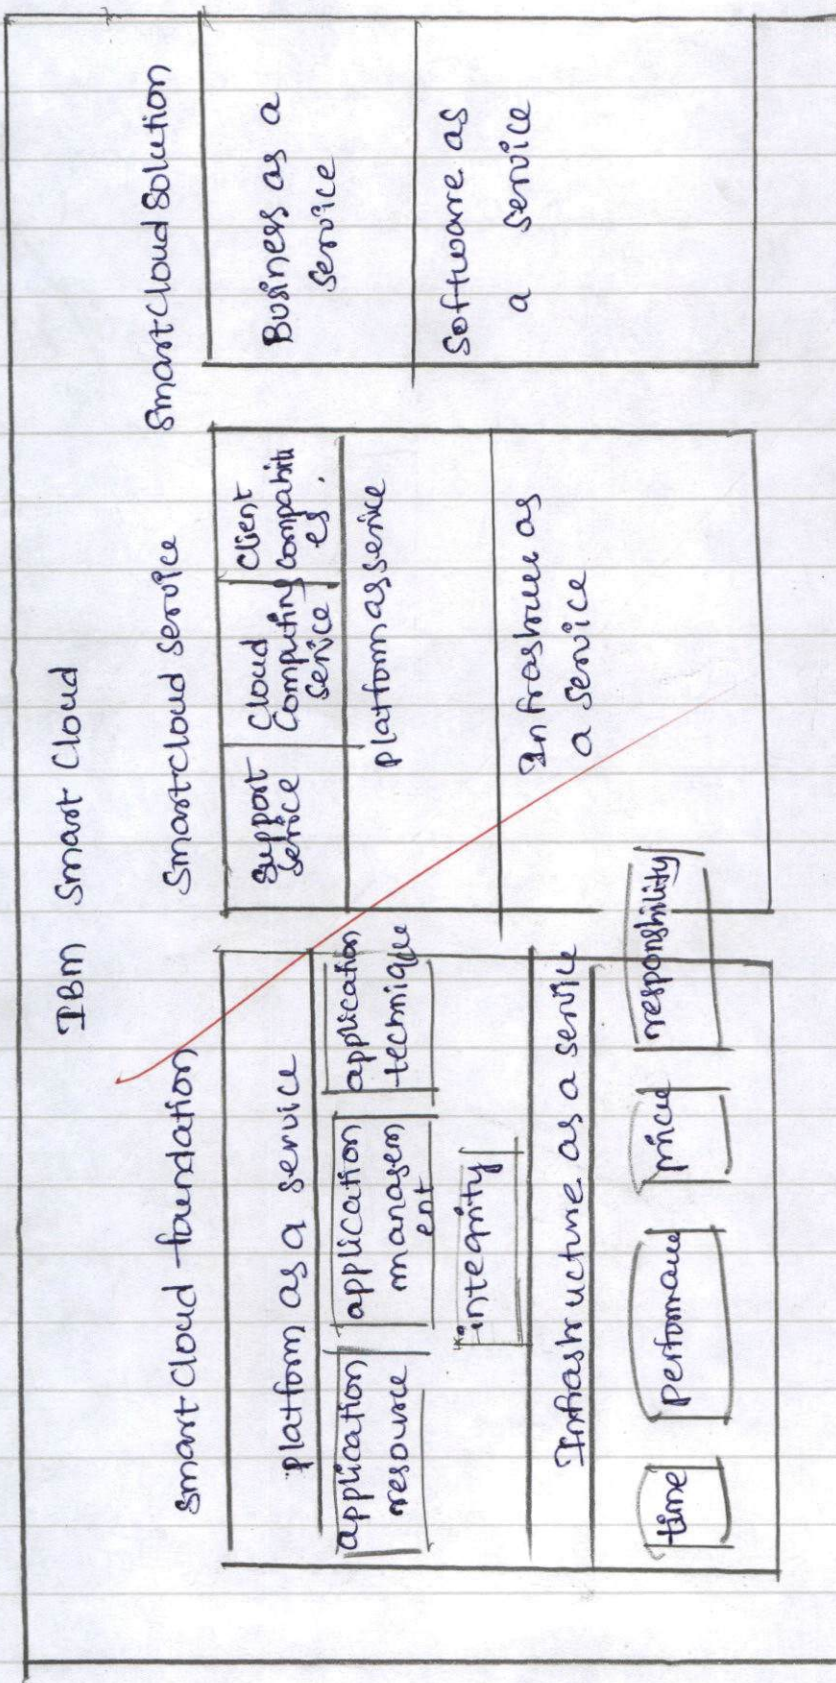 IBM Smart Cloud
Smart Cloud foundation
platform as a service
application
resource
application
managem
ent
application
technique
integrity
Infrastructure as a service
time
performane
price
responsbility
Smartcloud service
Support
Service
Cloud
Computing
service
Client
Compabiti
es.
platform as service
Infrastruue as
a service
Smart Cloud Solution
Business as a
service
Software as
a service